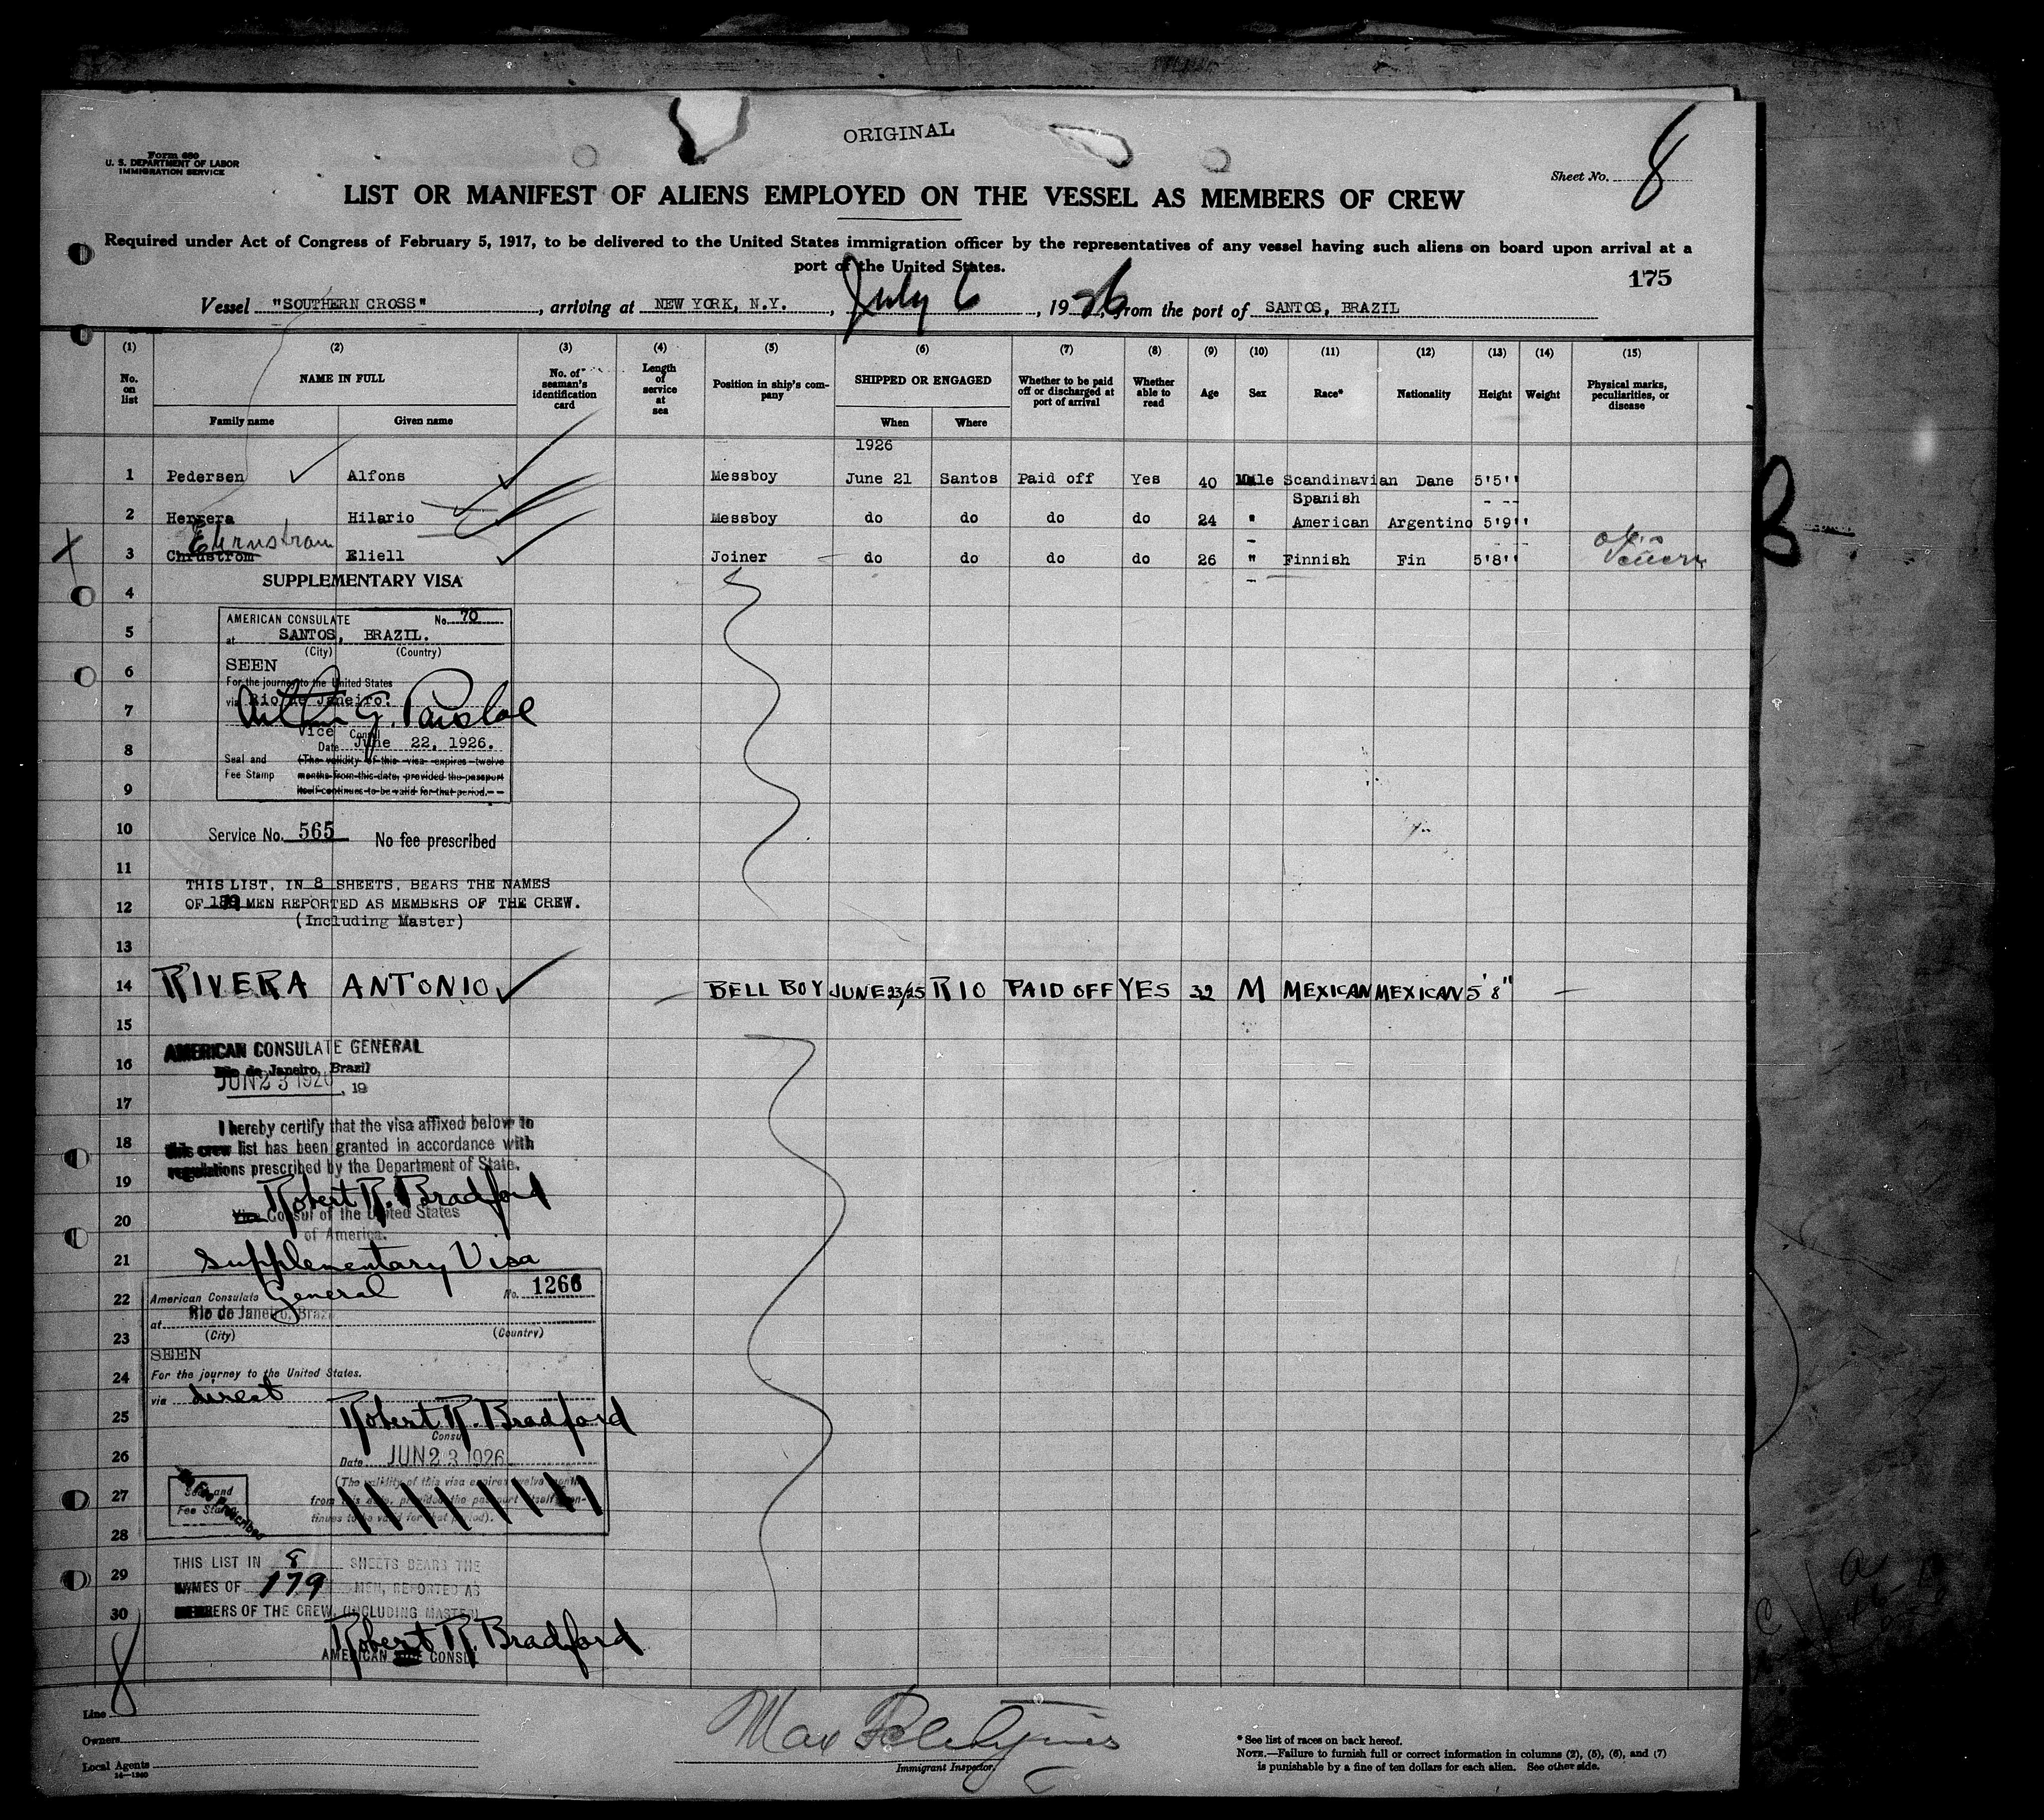 ORIGINAL
Form 680
U. S. DEPARTMENT OF LABOR
IMMIGRATION SERVICE
Sheet No. 8
LIST OR MANIFEST OF ALIENS EMPLOYED ON THE VESSEL AS MEMBERS OF CREW
Required under Act of Congress of February 5, 1917, to be delivered to the United States immigration officer by the representatives of any vessel having such aliens on board upon arrival at a
port of the United States.
175
Vessel "SOUTHERN CROSS", arriving at NEW YORK, N.Y., July 6, 1926, from the port of SANTOS, BRAZIL
(1) (2) (3) (4) (5) (6) (7) (8) (9) (10) (11) (12) (13) (14) (15)
No. on list NAME IN FULL Family name Given name No. of seaman's identification card Length of service at sea Position in ship's company SHIPPED OR ENGAGED When Where Whether to be paid off or discharged at port of arrival Whether able to read Age Sex Race* Nationality Height Weight Physical marks, peculiarities, or disease
1926
1 Pedersen Alfons Messboy June 21 Santos Paid off Yes 40 Male Scandinavian Dane 5'5''
2 Herrera Hilario Messboy do do do do 24 " Spanish American Argentino 5'9''
Ehrnstrom
3 Chrustrom Eliell Joiner do do do do 26 " Finnish Fin 5'8''
B
SUPPLEMENTARY VISA
4
5
6
7
8
9
10
11
12
13
AMERICAN CONSULATE No. 70
at SANTOS, BRAZIL.
(City) (Country)
SEEN
For the journey to the United States
via Rio de Janeiro.
Vice Consul
Date June 22, 1926.
Seal and Fee Stamp
(The validity of this visa expires twelve
months from this date, provided the passport
itself continues to be valid for that period.
Service No. 565 No fee prescribed
THIS LIST, IN 8 SHEETS, BEARS THE NAMES
OF MEN REPORTED AS MEMBERS OF THE CREW.
(Including Master)
14 RIVERA ANTONIO BELL BOY JUNE 23/25 RIO PAID OFF YES 32 M MEXICAN MEXICAN 5'8"
15
16
17
18
19
20
21
22
23
24
25
26
27
28
29
30
AMERICAN CONSULATE GENERAL
Rio de Janeiro, Brazil
JUN 23 1926, 19
I hereby certify that the visa affixed below to
this crew list has been granted in accordance with
regulations prescribed by the Department of State.
Robert R. Bradford
Vice Consul of the United States
of America.
Supplementary Visa
American Consulate General No. 1266
at Rio de Janeiro, Brazil
(City) (Country)
SEEN
For the journey to the United States.
via direct
Robert R. Bradford
Consul
Date JUN 23 1926
(The validity of this visa expires twelve months
from this date, provided the passport itself con-
tinues to be valid for that period).
Seal and
Fee Stamp
No Fee Prescribed
THIS LIST IN 8 SHEETS BEARS THE
NAMES OF 179 MEN, REPORTED AS
MEMBERS OF THE CREW, (INCLUDING MASTER)
Robert R. Bradford
AMERICAN VICE CONSUL
8
Line
Owners
Local Agents
14—1240
Immigrant Inspector.
* See list of races on back hereof.
NOTE.—Failure to furnish full or correct information in columns (2), (5), (6), and (7)
is punishable by a fine of ten dollars for each alien. See other side.